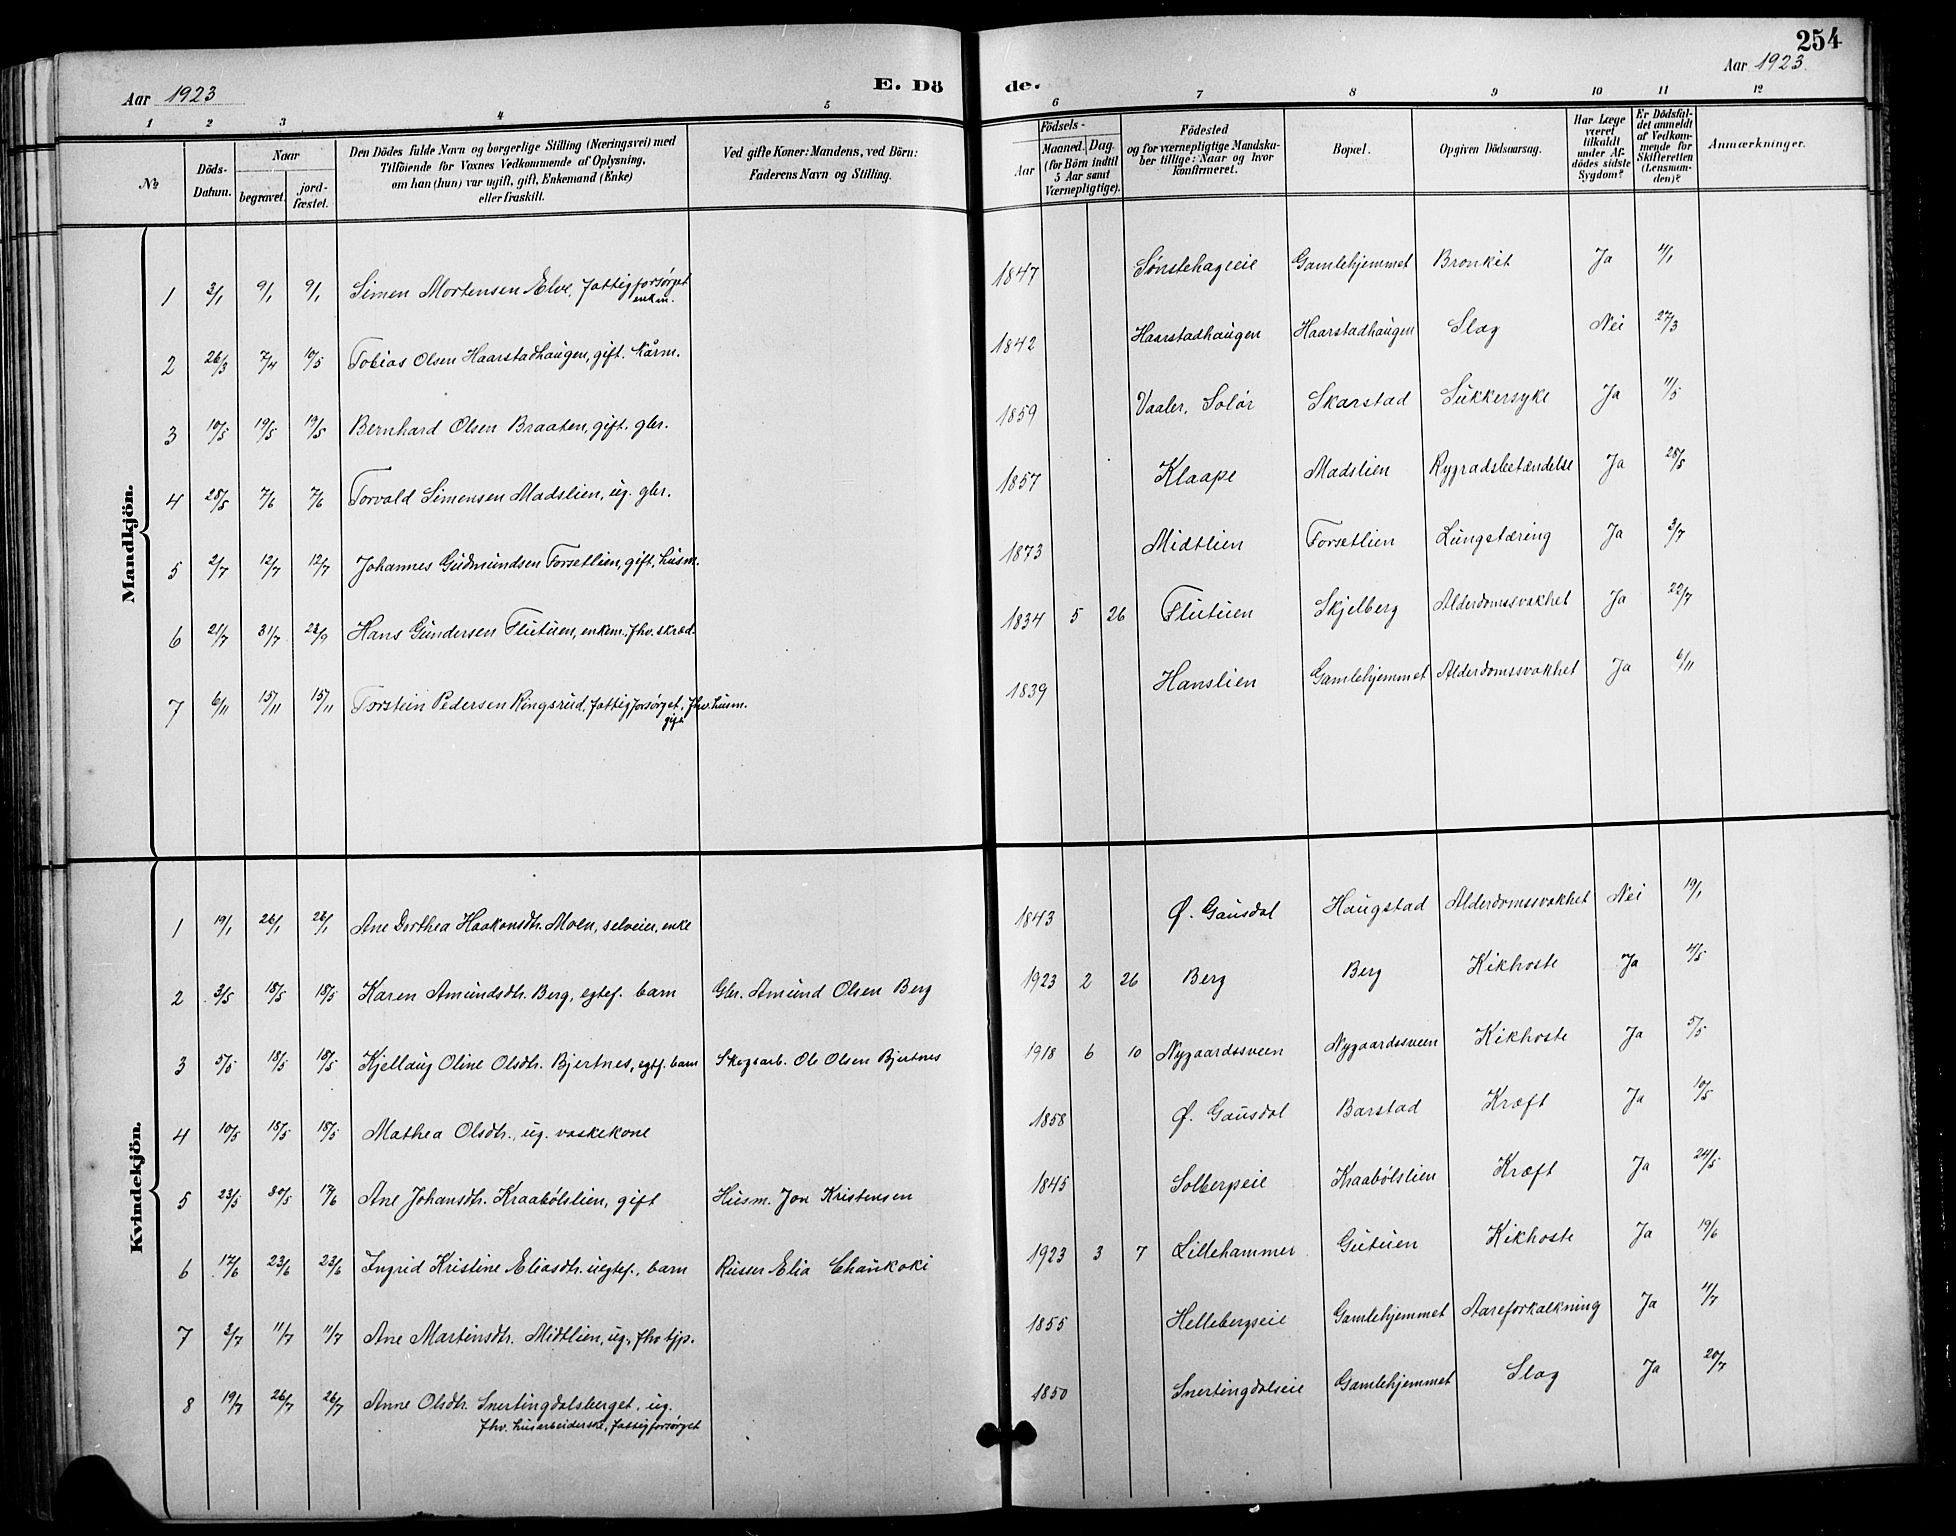 254
Aar 1923
E. Dö
de.
Aar 1923.
1 2 3 4 5 6 7 8 9 10 11 12
№
Döds-
Datum.
Naar
begravet.
jord-
fæstet.
Den Dödes fulde Navn og borgerlige Stilling (Næringsvei) med
Tilföiende for Voxnes Vedkommende af Oplysning,
om han (hun) var ugift, gift, Enkemand (Enke)
eller fraskilt.
Ved gifte Koner: Mandens, ved Börn:
Faderens Navn og Stilling.
Födsels-
Aar
Maaned. Dag.
(for Börn indtil
5 Aar samt
Værnepligtige).
Födested
og for værnepligtige Mandska-
ber tillige: Naar og hvor
konfirmeret.
Bopæl.
Opgiven Dödsaarsag.
Har Læge
været
tilkaldt
under Af-
dödes sidste
Sygdom?
Er Dödsfal-
det anmeldt
af Vedkom-
mende for
Skifteretten
(Lensman-
den)?
Anmærkninger.
Mandkjön.
1 3/1 9/1 9/1 Simen Mortensen Elve, fattigforsørget enkm. 1847 Sønstehageeie Gamlehjemmet Bronkit Ja 4/1
2 26/3 7/4 10/5 Tobias Olsen Haarstadhaugen, gift. 1842 Haarstadhaugen Haarstadhaugen Slag Nei 27/3
3 10/5 19/5 19/5 Bernhard Olsen Braaten, gift. gbr. 1859 Vaaler, Solør Skarstad Sukkersyke Ja 11/5
4 28/5 7/6 7/6 Torvald Simensen Madslien, ug. gbr. 1857 Klaape Madslien Rygradsbetændelse Ja 28/5
5 2/7 12/7 12/7 Johannes Gudmundsen Forsetlien, gift, husm. 1873 Midtlien Forsetlien Lungetæring Ja 3/7
6 21/7 31/7 23/9 Hans Gundersen Flutuen, enkem. fhv. skræd. 1834 5 26 Flutuen Skjelberg Alderdomssvakhet Ja 22/7
7 6/11 15/11 15/11 Torstein Pedersen Ringsrud, fattigforsørget, fhv. husm. gift 1839 Hanslien Gamlehjemmet Alderdomssvakhet Ja 6/11
Kvindekjön.
1 19/1 26/1 26/1 Ane Dorthea Haakonsdtr. Moen, selveier, enke 1843 Ø. Gausdal Haugstad Alderdomssvakhet Nei 19/1
2 3/5 18/5 18/5 Karen Amundsdtr. Berg, egtef. barn Gbr. Amund Olsen Berg 1923 2 26 Berg Berg Kikhoste Ja 4/5
3 5/5 18/5 18/5 Kjellaug Oline Olsdtr. Bjertnes, egtf. barn Skogsarb. Ole Olsen Bjertnes 1918 6 10 Nygaardssveen Nygaardssveen Kikhoste Ja 5/5
4 10/5 18/5 18/5 Mathea Olsdtr., ug. vaskekone 1858 Ø. Gausdal Barstad Kræft Ja 10/5
5 23/5 30/5 17/6 Ane Johansdtr. Kraabølslien, gift Husm. Jon Kristensen 1845 Solbergeie Kraabølslien Kræft Ja 24/5
6 17/6 23/6 23/6 Ingrid Kristine Eliasdtr. uegtef. barn Russer Elia Chaukoki 1923 3 7 Lillehammer Gutuen Kikhoste Ja 19/6
7 3/7 11/7 11/7 Ane Martinsdtr. Midtlien, ug., fhv tjp. 1855 Hellebergseie Gamlehjemmet Aareforkalkning Ja 4/7
8 19/7 26/7 26/7 Anne Olsdtr. Snertingdalsberget, ug. 1850 Snertingdalseie Gamlehjemmet Slag Ja 20/7
fhv. husarbeiderske, fattigforsørget